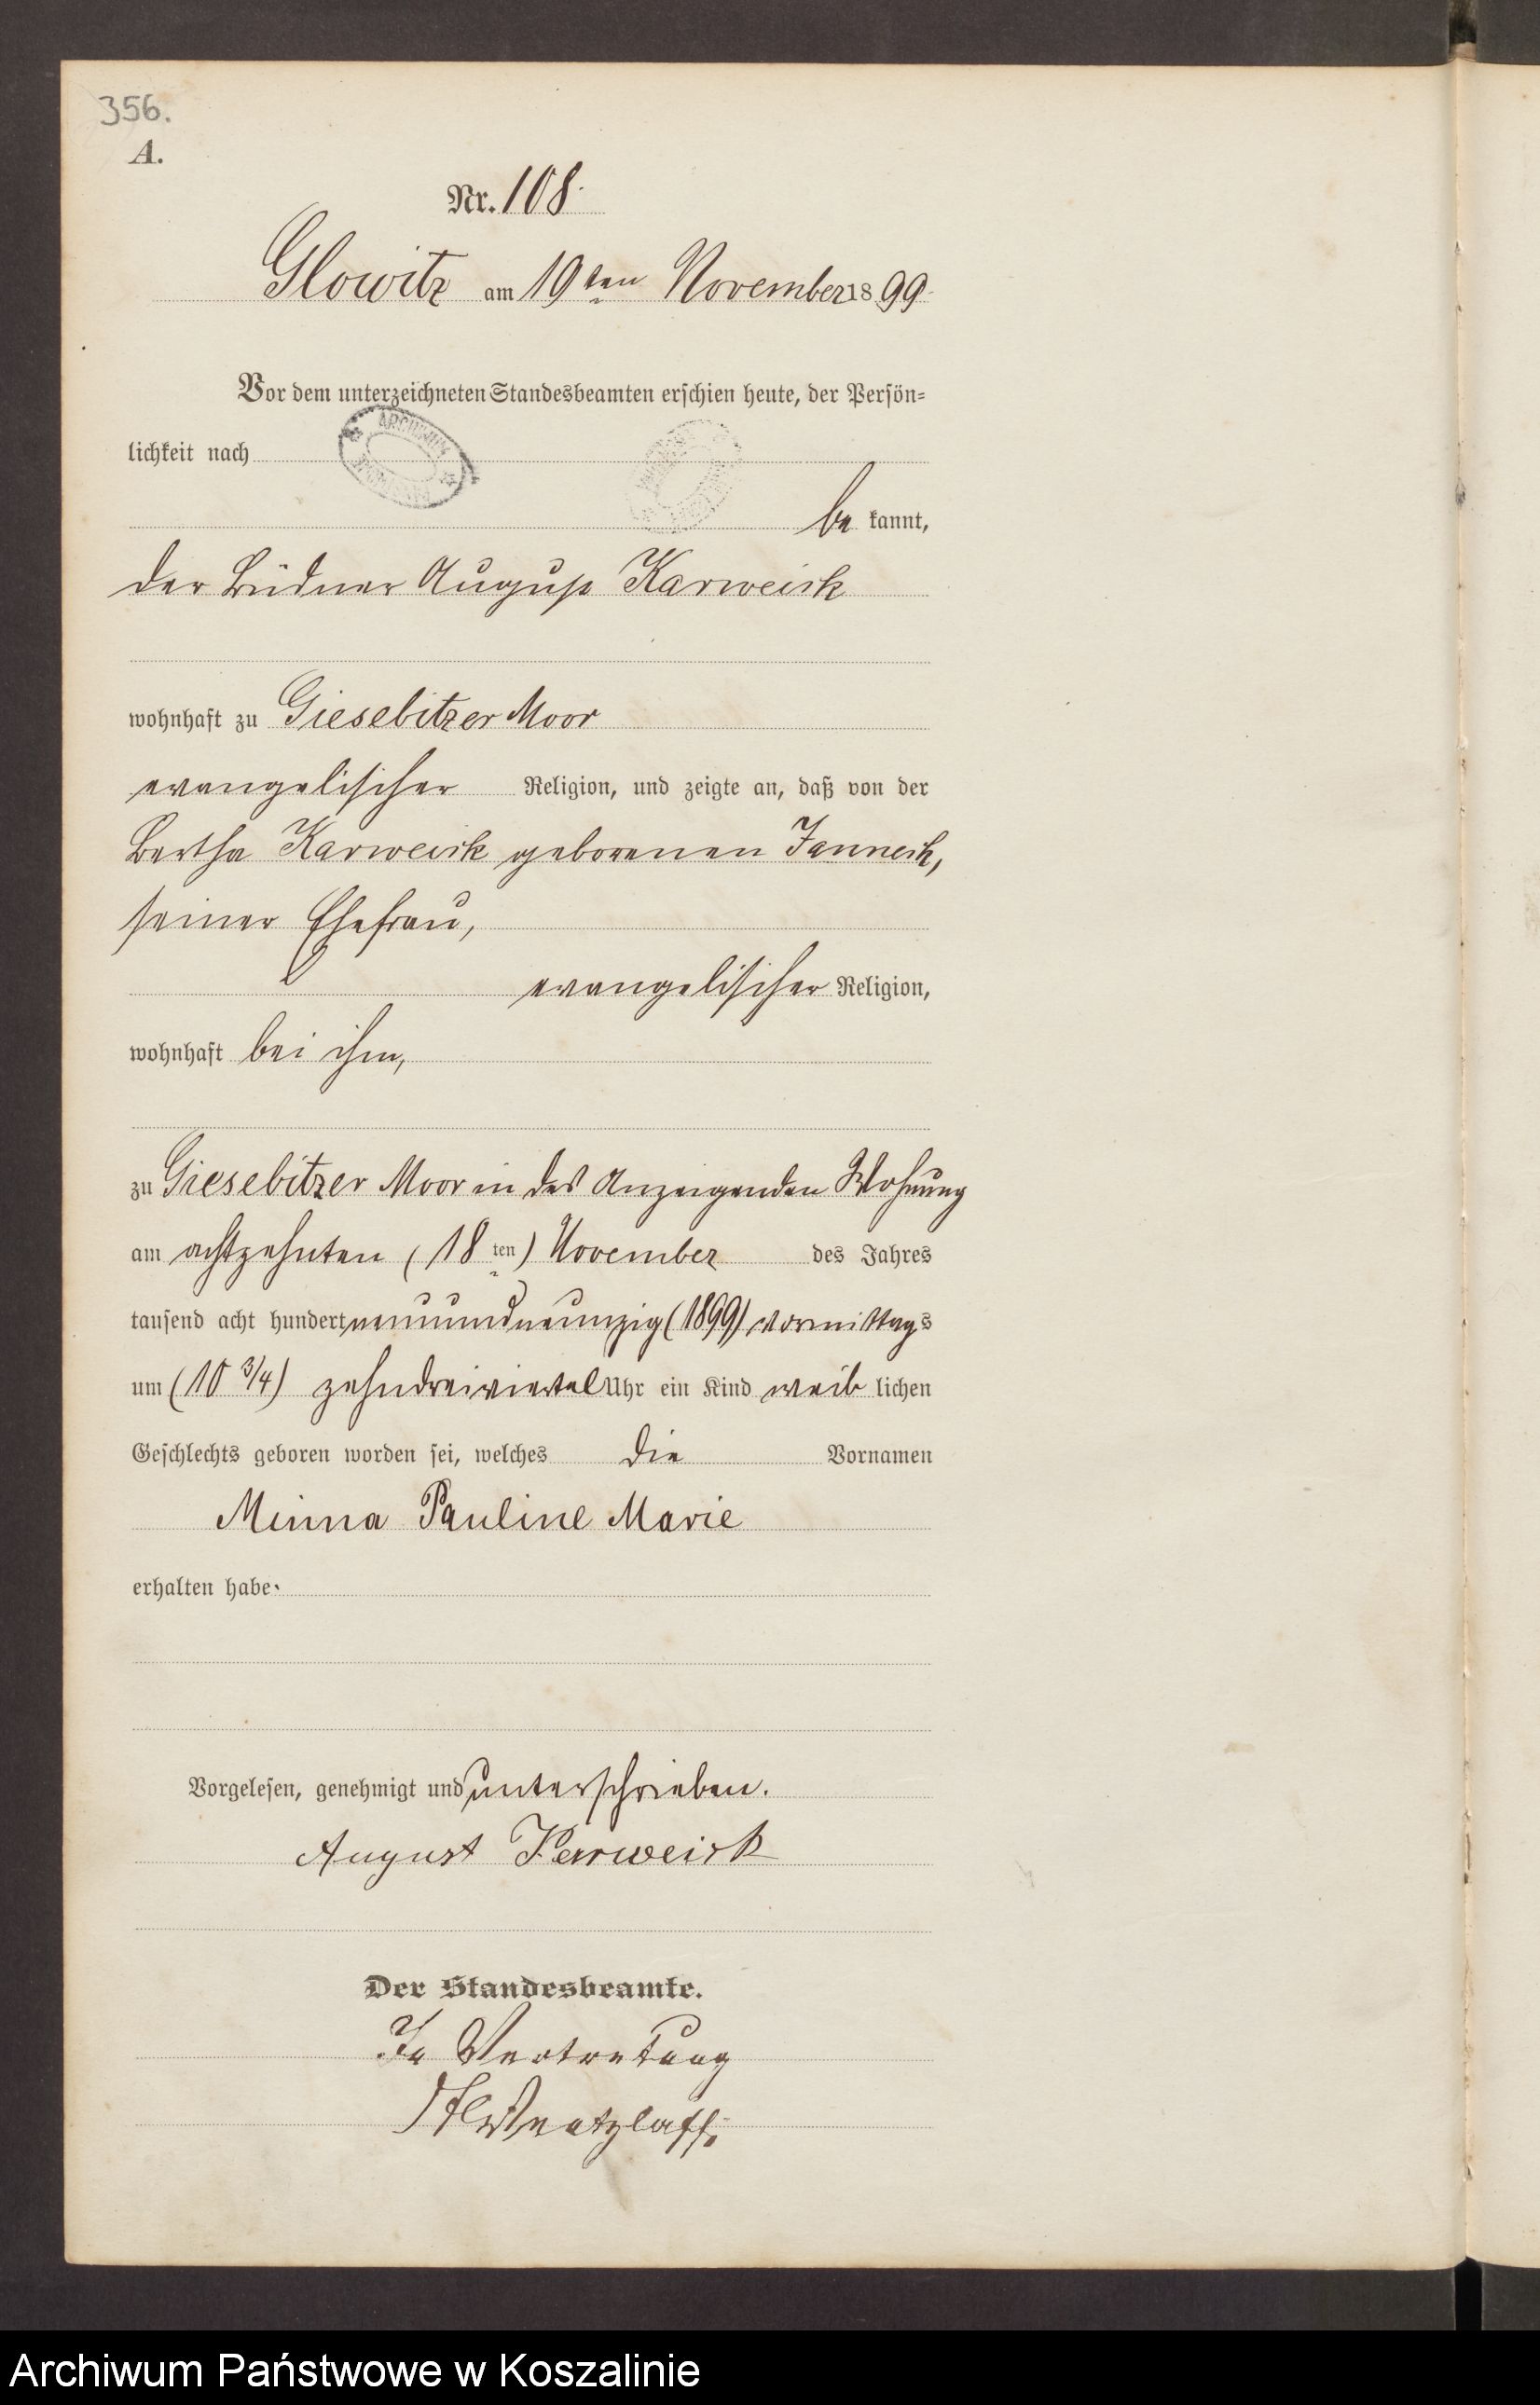 356.
A.
Nr. 108.
Glowitz am 19ten November 1899.
Vor dem unterzeichneten Standesbeamten erschien heute, der Persön-
lichkeit nach
ARCHIWUM
be kannt,
der Büdner August Karweick
wohnhaft zu Giesebitzer Moor
evangelischer Religion, und zeigte an, daß von der
Bertha Karweick geborenen Janneck,
seiner Ehefrau,
evangelischer Religion,
wohnhaft bei ihm,
zu Giesebitzer Moor in des Anzeigenden Wohnung
am achtzehnten (18ten) November des Jahres
tausend acht hundert neunundneunzig (1899) Vormittags
um (10 3/4) zehndreiviertel Uhr ein Kind weib lichen
Geschlechts geboren worden sei, welches die Vornamen
Minna Pauline Marie
erhalten habe.
Vorgelesen, genehmigt und unterschrieben.
August Karweick
Der Standesbeamte.
In Vertretung
Archiwum Państwowe w Koszalinie